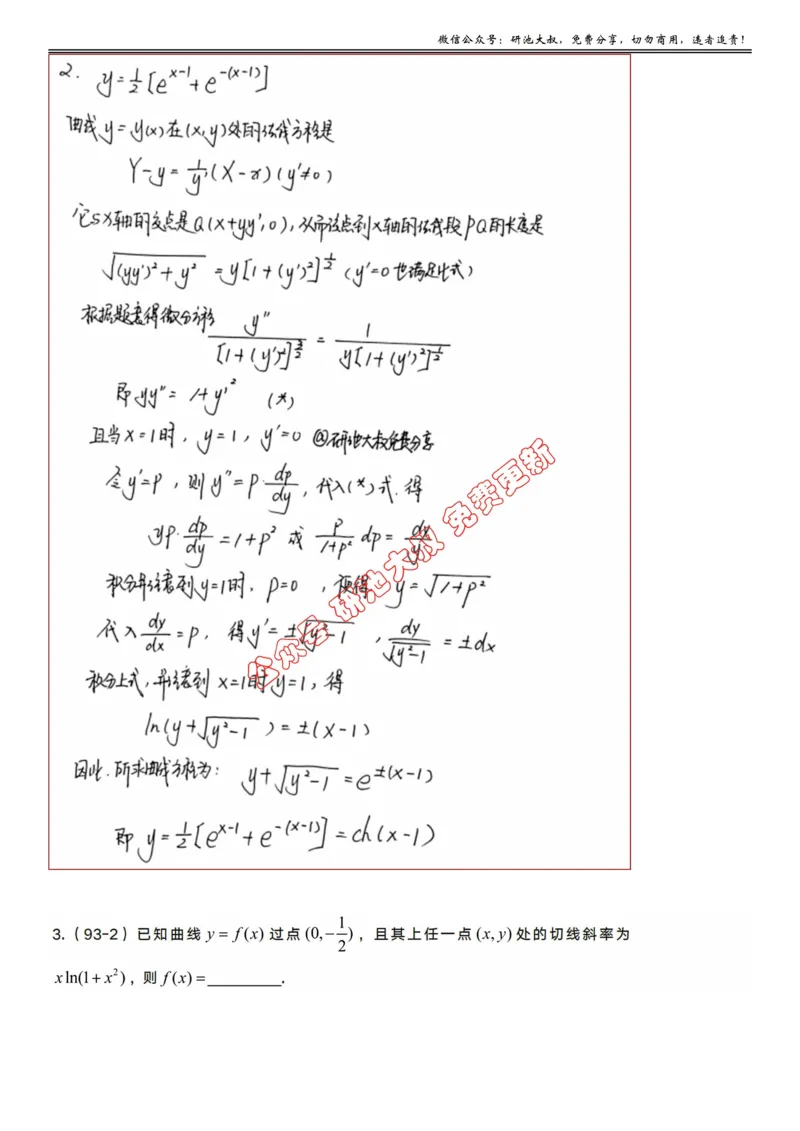 微信公众号：研池大叔，免费分享，切勿商用，违者追责！
2. y=½[e^{x-1}+e^{-(x-1)}]
曲线y=y(x)在(x,y)处的法线方程是
Y-y=-\frac{1}{y'}(X-x)(y'≠0)
它与X轴的交点是Q(x+yy',0),从而该点到x轴的法线段PQ的长度是
\sqrt{(yy')²+y²}=y[1+(y')²]^{\frac{1}{2}}(y'=0也满足此式)
根据题意得微分方程 \frac{y''}{[1+(y')²]^{\frac{3}{2}}}=\frac{1}{y[1+(y')²]^{\frac{1}{2}}}
即yy''=1+y'² (*)
且当x=1时,y=1,y'=0 @研池大叔免费分享
令y'=p,则y''=p·\frac{dp}{dy},代入(*)式.得
yp·\frac{dp}{dy}=1+p² 或 \frac{p}{1+p²}dp=\frac{dy}{y}
积分并注意到y=1时,p=0,便得 y=\sqrt{1+p²}
代入\frac{dy}{dx}=p,得y'=±\sqrt{y²-1},\frac{dy}{\sqrt{y²-1}}=±dx
积分上式,并注意到x=1时y=1,得
ln(y+\sqrt{y²-1})=±(x-1)
因此.所求曲线方程为: y+\sqrt{y²-1}=e^{±(x-1)}
即y=½[e^{x-1}+e^{-(x-1)}]=ch(x-1)
公众号 研池大叔 免费更新
3.（93-2）已知曲线 y=f(x) 过点 (0,-\frac{1}{2})，且其上任一点 (x,y) 处的切线斜率为
xln(1+x²)，则 f(x)=________.